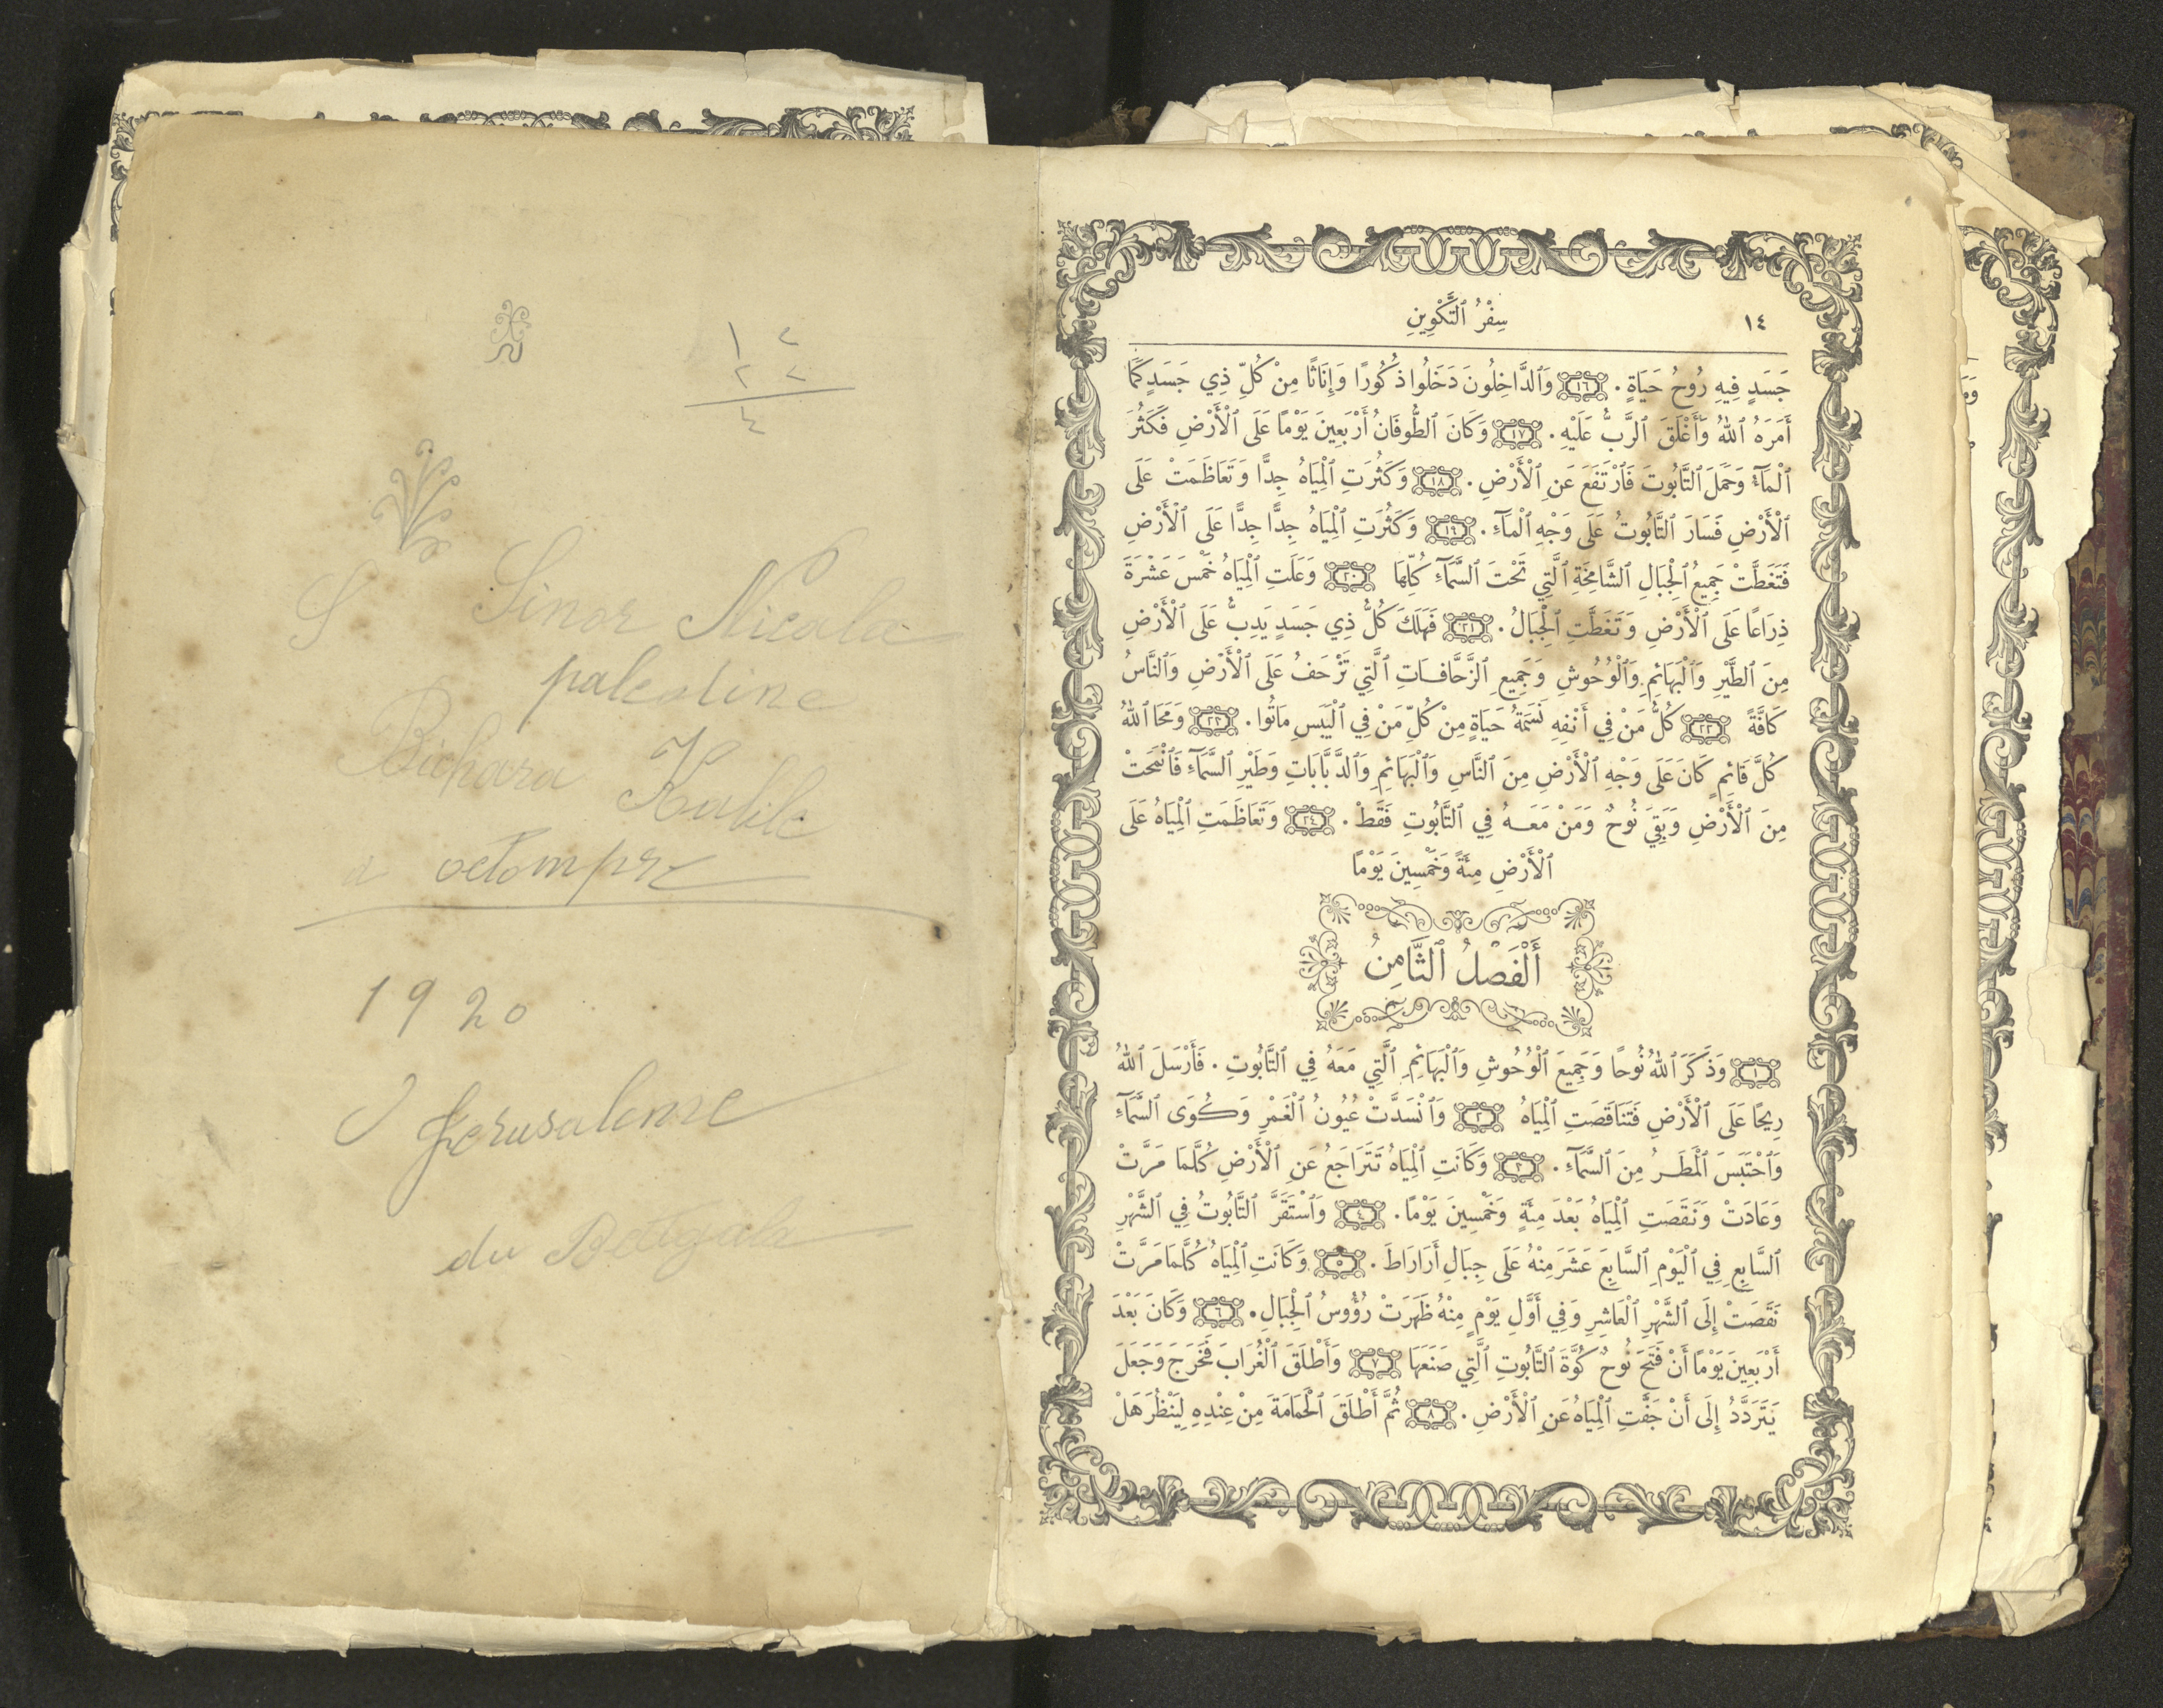 ١ ٢
٢ ٢
٤
S Sinor Nicola
palestine
Bichara Kalile
a octompre
1920
J Jerusaleme
du Betigala
١٤
سِفْرُ ٱلتَّكْوِينِ
جَسَدٍ فِيهِ رُوحُ حَيَاةٍ. ١٦ وَٱلدَّاخِلُونَ دَخَلُوا ذُكُورًا وَإِنَاثًا مِنْ كُلِّ ذِي جَسَدٍ كَمَا
أَمَرَهُ ٱللهُ وَأَغْلَقَ ٱلرَّبُّ عَلَيْهِ. ١٧ وَكَانَ ٱلطُّوفَانُ أَرْبَعِينَ يَوْمًا عَلَى ٱلْأَرْضِ فَكَثُرَ
ٱلْمَآءُ وَحَمَلَ ٱلتَّابُوتَ فَٱرْتَفَعَ عَنِ ٱلْأَرْضِ. ١٨ وَكَثُرَتِ ٱلْمِيَاهُ جِدًّا وَتَعَاظَمَتْ عَلَى
ٱلْأَرْضِ فَسَارَ ٱلتَّابُوتُ عَلَى وَجْهِ ٱلْمَآءِ. ١٩ وَكَثُرَتِ ٱلْمِيَاهُ جِدًّا جِدًّا عَلَى ٱلْأَرْضِ
فَتَغَطَّتْ جَمِيعُ ٱلْجِبَالِ ٱلشَّامِخَةِ ٱلَّتِي تَحْتَ ٱلسَّمَآءِ كُلِّهَا ٢٠ وَعَلَتِ ٱلْمِيَاهُ خَمْسَ عَشْرَةَ
ذِرَاعًا عَلَى ٱلْأَرْضِ وَتَغَطَّتِ ٱلْجِبَالُ. ٢١ فَهَلَكَ كُلُّ ذِي جَسَدٍ يَدِبُّ عَلَى ٱلْأَرْضِ
مِنَ ٱلطَّيْرِ وَٱلْبَهَائِمِ وَٱلْوُحُوشِ وَجَمِيعِ ٱلزَّحَّافَاتِ ٱلَّتِي تَزْحَفُ عَلَى ٱلْأَرْضِ وَٱلنَّاسُ
كَافَّةً ٢٢ كُلُّ مَنْ فِي أَنْفِهِ نَسَمَةُ حَيَاةٍ مِنْ كُلِّ مَنْ فِي ٱلْيَبَسِ مَاتُوا. ٢٣ وَمَحَا ٱللهُ
كُلَّ قَائِمٍ كَانَ عَلَى وَجْهِ ٱلْأَرْضِ مِنَ ٱلنَّاسِ وَٱلْبَهَائِمِ وَٱلدَّبَّابَاتِ وَطَيْرِ ٱلسَّمَآءِ فَٱنْمَحَتْ
مِنَ ٱلْأَرْضِ وَبَقِيَ نُوحٌ وَمَنْ مَعَهُ فِي ٱلتَّابُوتِ فَقَطْ. ٢٤ وَتَعَاظَمَتِ ٱلْمِيَاهُ عَلَى
ٱلْأَرْضِ مِئَةً وَخَمْسِينَ يَوْمًا
أَلْفَصْلُ ٱلثَّامِنُ
١ وَذَكَرَ ٱللهُ نُوحًا وَجَمِيعَ ٱلْوُحُوشِ وَٱلْبَهَائِمِ ٱلَّتِي مَعَهُ فِي ٱلتَّابُوتِ. فَأَرْسَلَ ٱللهُ
رِيحًا عَلَى ٱلْأَرْضِ فَتَنَاقَصَتِ ٱلْمِيَاهُ ٢ وَٱنْسَدَّتْ عُيُونُ ٱلْغَمْرِ وَكُوَى ٱلسَّمَآءِ
وَٱحْتَبَسَ ٱلْمَطَرُ مِنَ ٱلسَّمَآءِ. ٣ وَكَانَتِ ٱلْمِيَاهُ تَتَرَاجَعُ عَنِ ٱلْأَرْضِ كُلَّمَا مَرَّتْ
وَعَادَتْ وَنَقَصَتِ ٱلْمِيَاهُ بَعْدَ مِئَةٍ وَخَمْسِينَ يَوْمًا. ٤ وَٱسْتَقَرَّ ٱلتَّابُوتُ فِي ٱلشَّهْرِ
ٱلسَّابِعِ فِي ٱلْيَوْمِ ٱلسَّابِعَ عَشَرَ مِنْهُ عَلَى جِبَالِ أَرَارَاطَ. ٥ وَكَانَتِ ٱلْمِيَاهُ كُلَّمَا مَرَّتْ
نَقَصَتْ إِلَى ٱلشَّهْرِ ٱلْعَاشِرِ وَفِي أَوَّلِ يَوْمٍ مِنْهُ ظَهَرَتْ رُؤُوسُ ٱلْجِبَالِ. ٦ وَكَانَ بَعْدَ
أَرْبَعِينَ يَوْمًا أَنْ فَتَحَ نُوحٌ كُوَّةَ ٱلتَّابُوتِ ٱلَّتِي صَنَعَهَا ٧ وَأَطْلَقَ ٱلْغُرَابَ فَخَرَجَ وَجَعَلَ
يَتَرَدَّدُ إِلَى أَنْ جَفَّتِ ٱلْمِيَاهُ عَنِ ٱلْأَرْضِ. ٨ ثُمَّ أَطْلَقَ ٱلْحَمَامَةَ مِنْ عِنْدِهِ لِيَنْظُرَ هَلْ